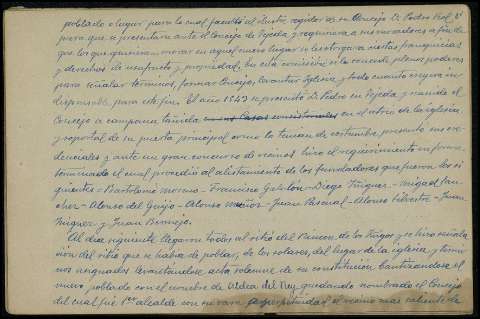 poblado o lugar para lo cual facultó al ilustre regidor de su Concejo D. Pedro
para que se presentara ante el Concejo de Tejeda y requiriera a sus moradores a fin de
que los que quisieran morar en aquel nuevo lugar se les otorgara ciertas franquicias
y derechos de usufructo y propiedad. En esta comisión se le concede plenos poderes
para señalar términos, formar Concejo, levantar Iglesia y todo cuanto creyera in-
dispensable para este fin. El año 1543 se presentó D. Pedro en Tejeda y reunido el
Concejo a campana tañida en sus Casas consistoriales en el atrio de la iglesia
y soportal de su puerta principal como lo tenían de costumbre presentó sus cre-
denciales y ante un gran concurso de vecinos hizo el requerimiento en forma
terminado el cual procedió al alistamiento de los fundadores que fueron los si-
guientes: Bartolomé Moreno - Francisco - Diego Íñiguez - Migad San-
chez - Alonso del Guijo - Alonso Muñoz - Juan Pascual - Alonso Silvestre - Juan
Iñiguez y Juan Bermejo.
Al día siguiente llegaron todos al sitio del Rincón de los Trigos y se hizo señala-
ción del sitio que se había de poblar, de los solares, del lugar de la iglesia y térmi-
nos asignados levantándose acta solemne de su constitución, bautizándose el
nuevo poblado con el nombre de Aldea del Rey quedando nombrado el Concejo
del cual fué 1er alcalde con su vara el vecino mas caliente de